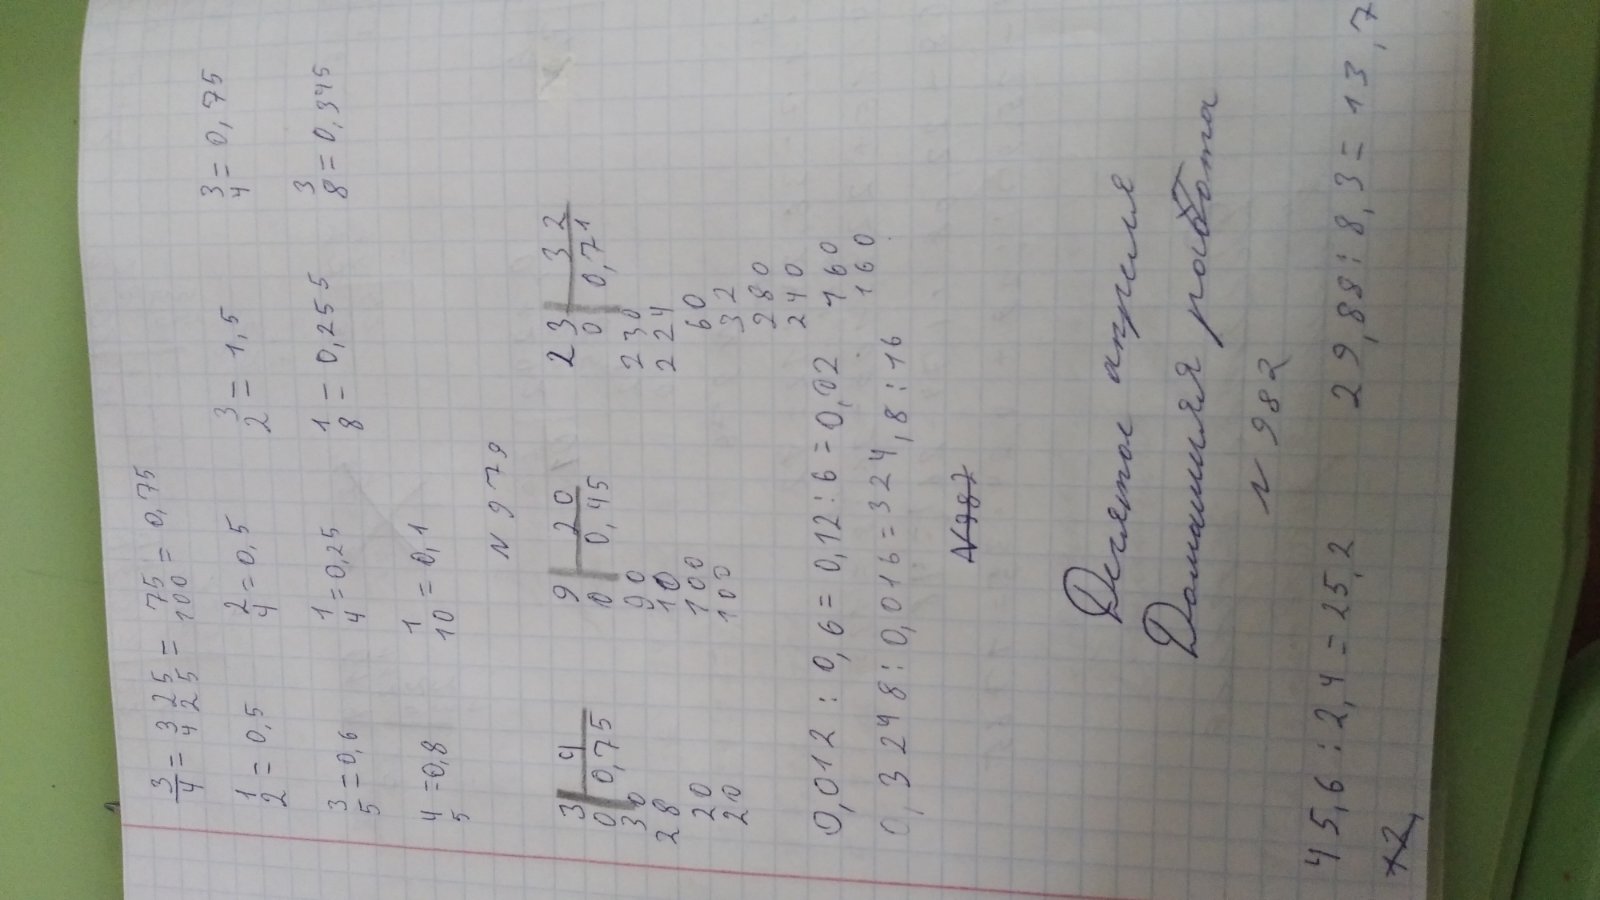 3/4 = 3 25/4 25 = 75/100 = 0,75
1/2 = 0,5 2/4 = 0,5 3/2 = 1,5 3/4 = 0,75
3/5 = 0,6 1/4 = 0,25 1/8 = 0,255 3/8 = 0,345
4/5 = 0,8 1/10 = 0,1
N 979
3 4 9 20 23 32
0 0,75 0 0,45 0 0,71
30 90 230
28 10 224
20 100 60
20 100 32
280
240
160
160
0,012 : 0,6 = 0,12 : 6 = 0,02
0,3248 : 0,016 = 324,8 : 16
N 987
Десятое апреля
Домашняя работа
N 982
45,6 : 2,4 = 25,2 29,88 : 8,3 = 13,7